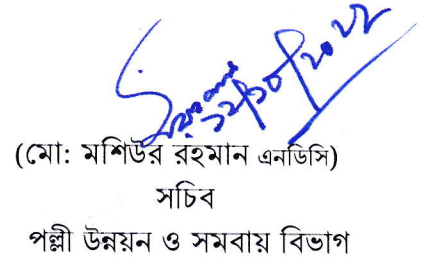 ১২/১০/২০২২
(মো: মশিউর রহমান এনডিসি)
সচিব
পল্লী উন্নয়ন ও সমবায় বিভাগ